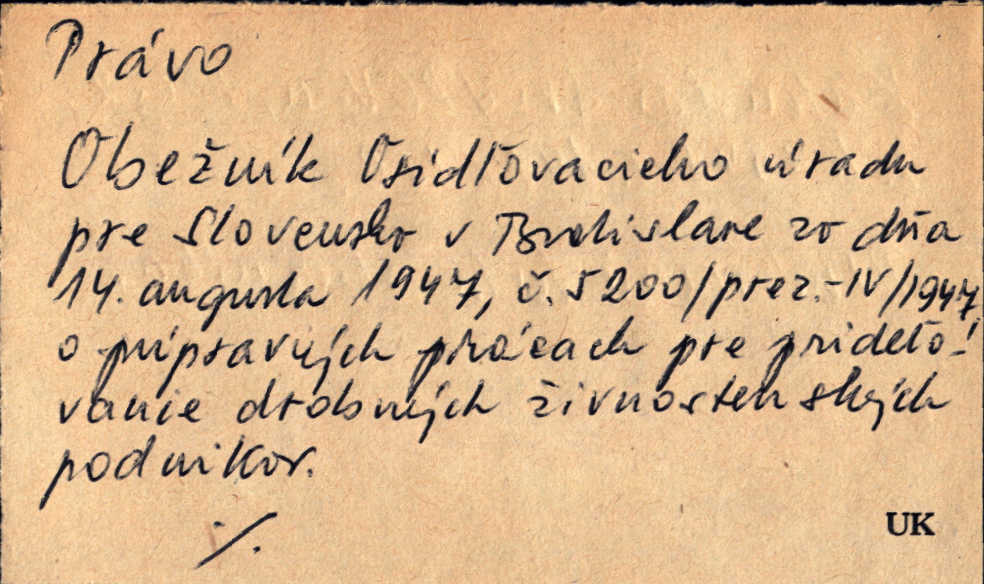 Právo
Obežník Osidľovacieho úradu
pre Slovensko v Bratislave zo dňa
14. augusta 1947, č. 5200/prez.-IV/1947
o prípravných prácach pre prideľo-
vanie drobných živnostenských
podnikov.
./.
UK